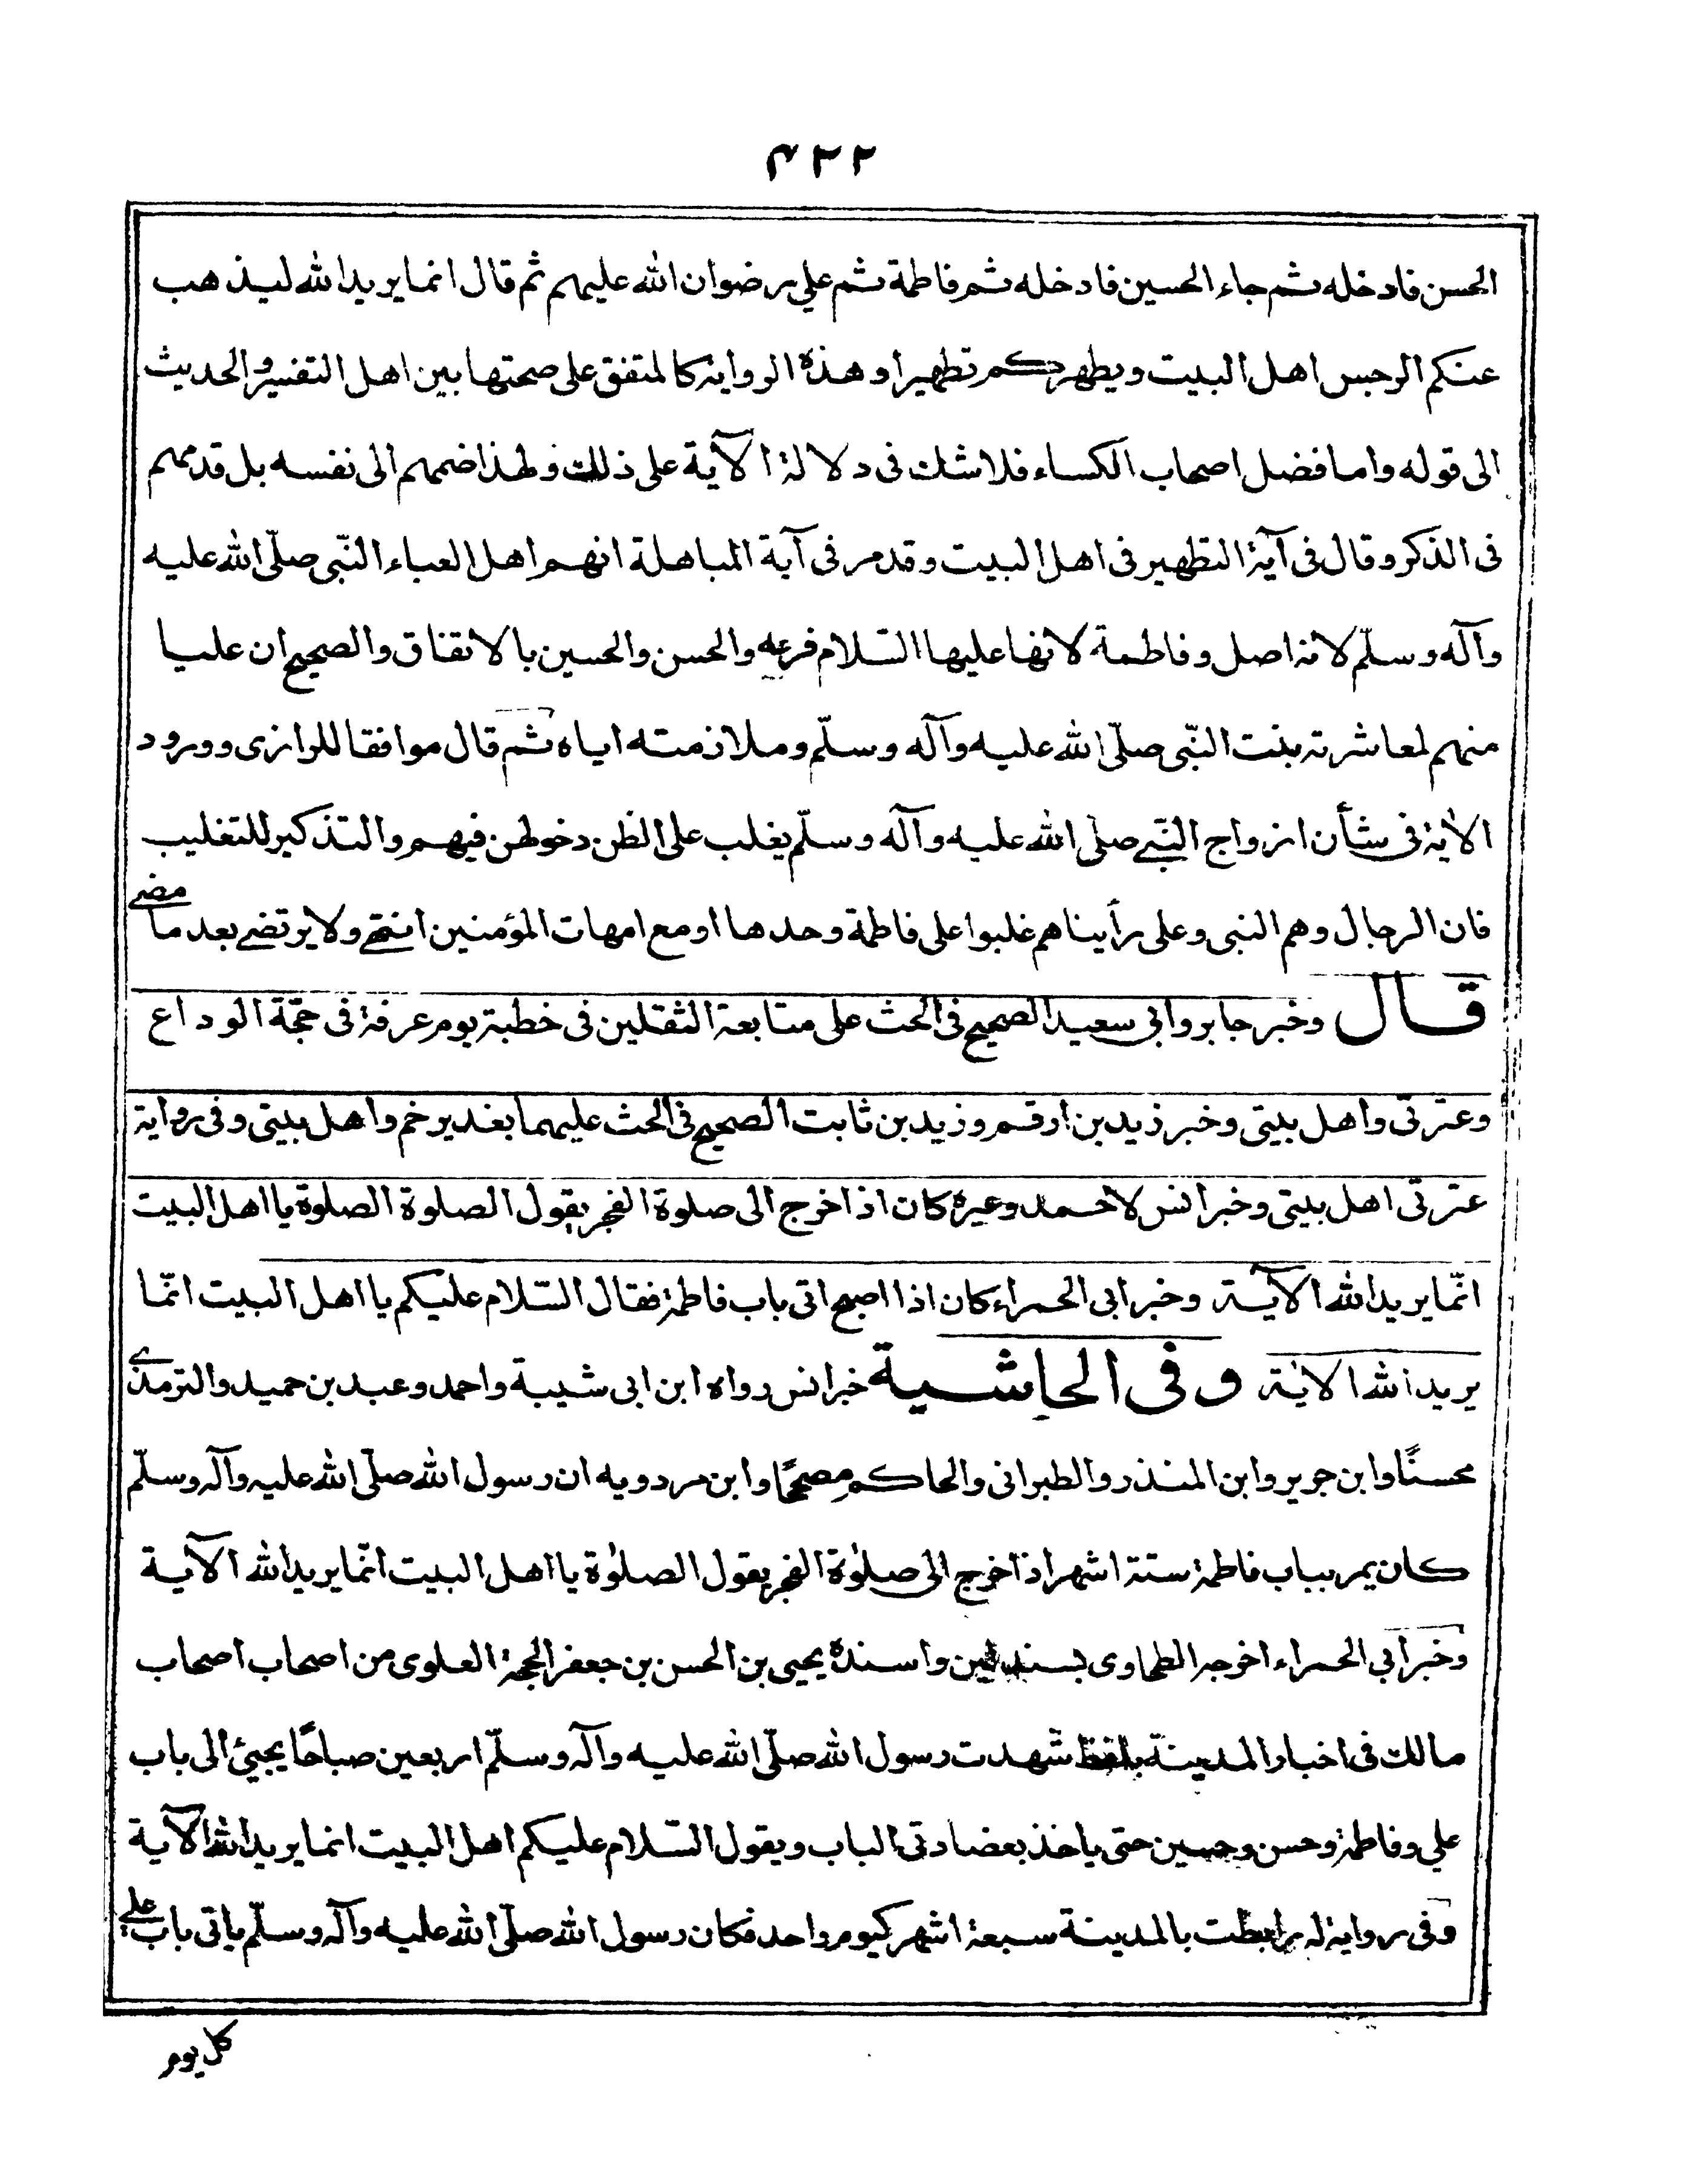 ٤٣٢
الحسن فادخله ثم جاء الحسين فادخله ثم فاطمة ثم علي رضوان الله عليهم ثم قال انما يريد الله ليذهب
عنكم الرجس اهل البيت ويطهركم تطهيرا وهذه الرواية كالمتفق على صحتها بين اهل التفسير والحديث
الى قوله واما فضل اصحاب الكساء فلا شك فى دلالة الآية على ذلك ولهذا ضمهم الى نفسه بل قدمهم
فى الذكر وقال فى آية التطهير فى اهل البيت وقد مر فى آية المباهلة انهم اهل العباء النّبى صلّى الله عليه
وآله وسلّم لانه اصل وفاطمة لانها عليها السّلام فرعه والحسن والحسين بالاتفاق والصحيح ان عليا
منهم لمعاشرته بنت النّبى صلّى الله عليه وآله وسلّم وملازمته اياه ثم قال موافقا للرازى وورود
الآية فى شأن ازواج النّبي صلى الله عليه وآله وسلّم يغلب على الظن دخولهن فيهم والتذكير للتغليب
فان الرجال وهم النبى وعلى رأيناهم غلبوا على فاطمة وحدها او مع امهات المؤمنين انتهى ولا يرتضے بعد ما مضے
قال وخبر جابر وابى سعيد الصحيح فى الحث على متابعة الثقلين فى خطبة يوم عرفة فى حجّة الوداع
وعترتى واهل بيتى وخبر زيد بن ارقم وزيد بن ثابت الصحيح فى الحث عليهما بغدير خم واهل بيتى وفى رواية
عترتى اهل بيتى وخبر انس لاحمد وغيره كان اذا خرج الى صلوة الفجر يقول الصلوة الصلوة يا اهل البيت
انّما يريد الله الآية وخبر ابى الحمراء كان اذا اصبح اتى باب فاطمة فقال السّلام عليكم يا اهل البيت انّما
يريد الله الآية وفى الحاشية خبر انس رواه ابن ابى شيبة واحمد وعبد بن حميد والترمذے
محسنًا وابن جرير وابن المنذر والطبرانى والحاكم مصححًا وابن مردويه ان رسول الله صلّى الله عليه وآله وسلّم
كان يمر بباب فاطمة ستة اشهر اذا خرج الى صلوٰة الفجر يقول الصلوٰة يا اهل البيت انّما يريد الله الآية
وخبر ابي الحمراء اخرجه الطحاوى بسندين واسنده يحيى بن الحسن بن جعفر الحجة العلوى من اصحاب اصحاب
مالك فى اخبار المدينة بلفظ شهدت رسول الله صلّى الله عليه وآله وسلّم اربعين صباحًا يجيئ الى باب
علي وفاطمة وحسن وحسين حتى ياخذ بعضادتى الباب ويقول السّلام عليكم اهل البيت انما يريد الله الآية
وفى رواية له رابطت بالمدينة سبعة اشهر كيوم واحد فكان رسول الله صلّى الله عليه وآله وسلّم ياتى باب علي
كل يوم